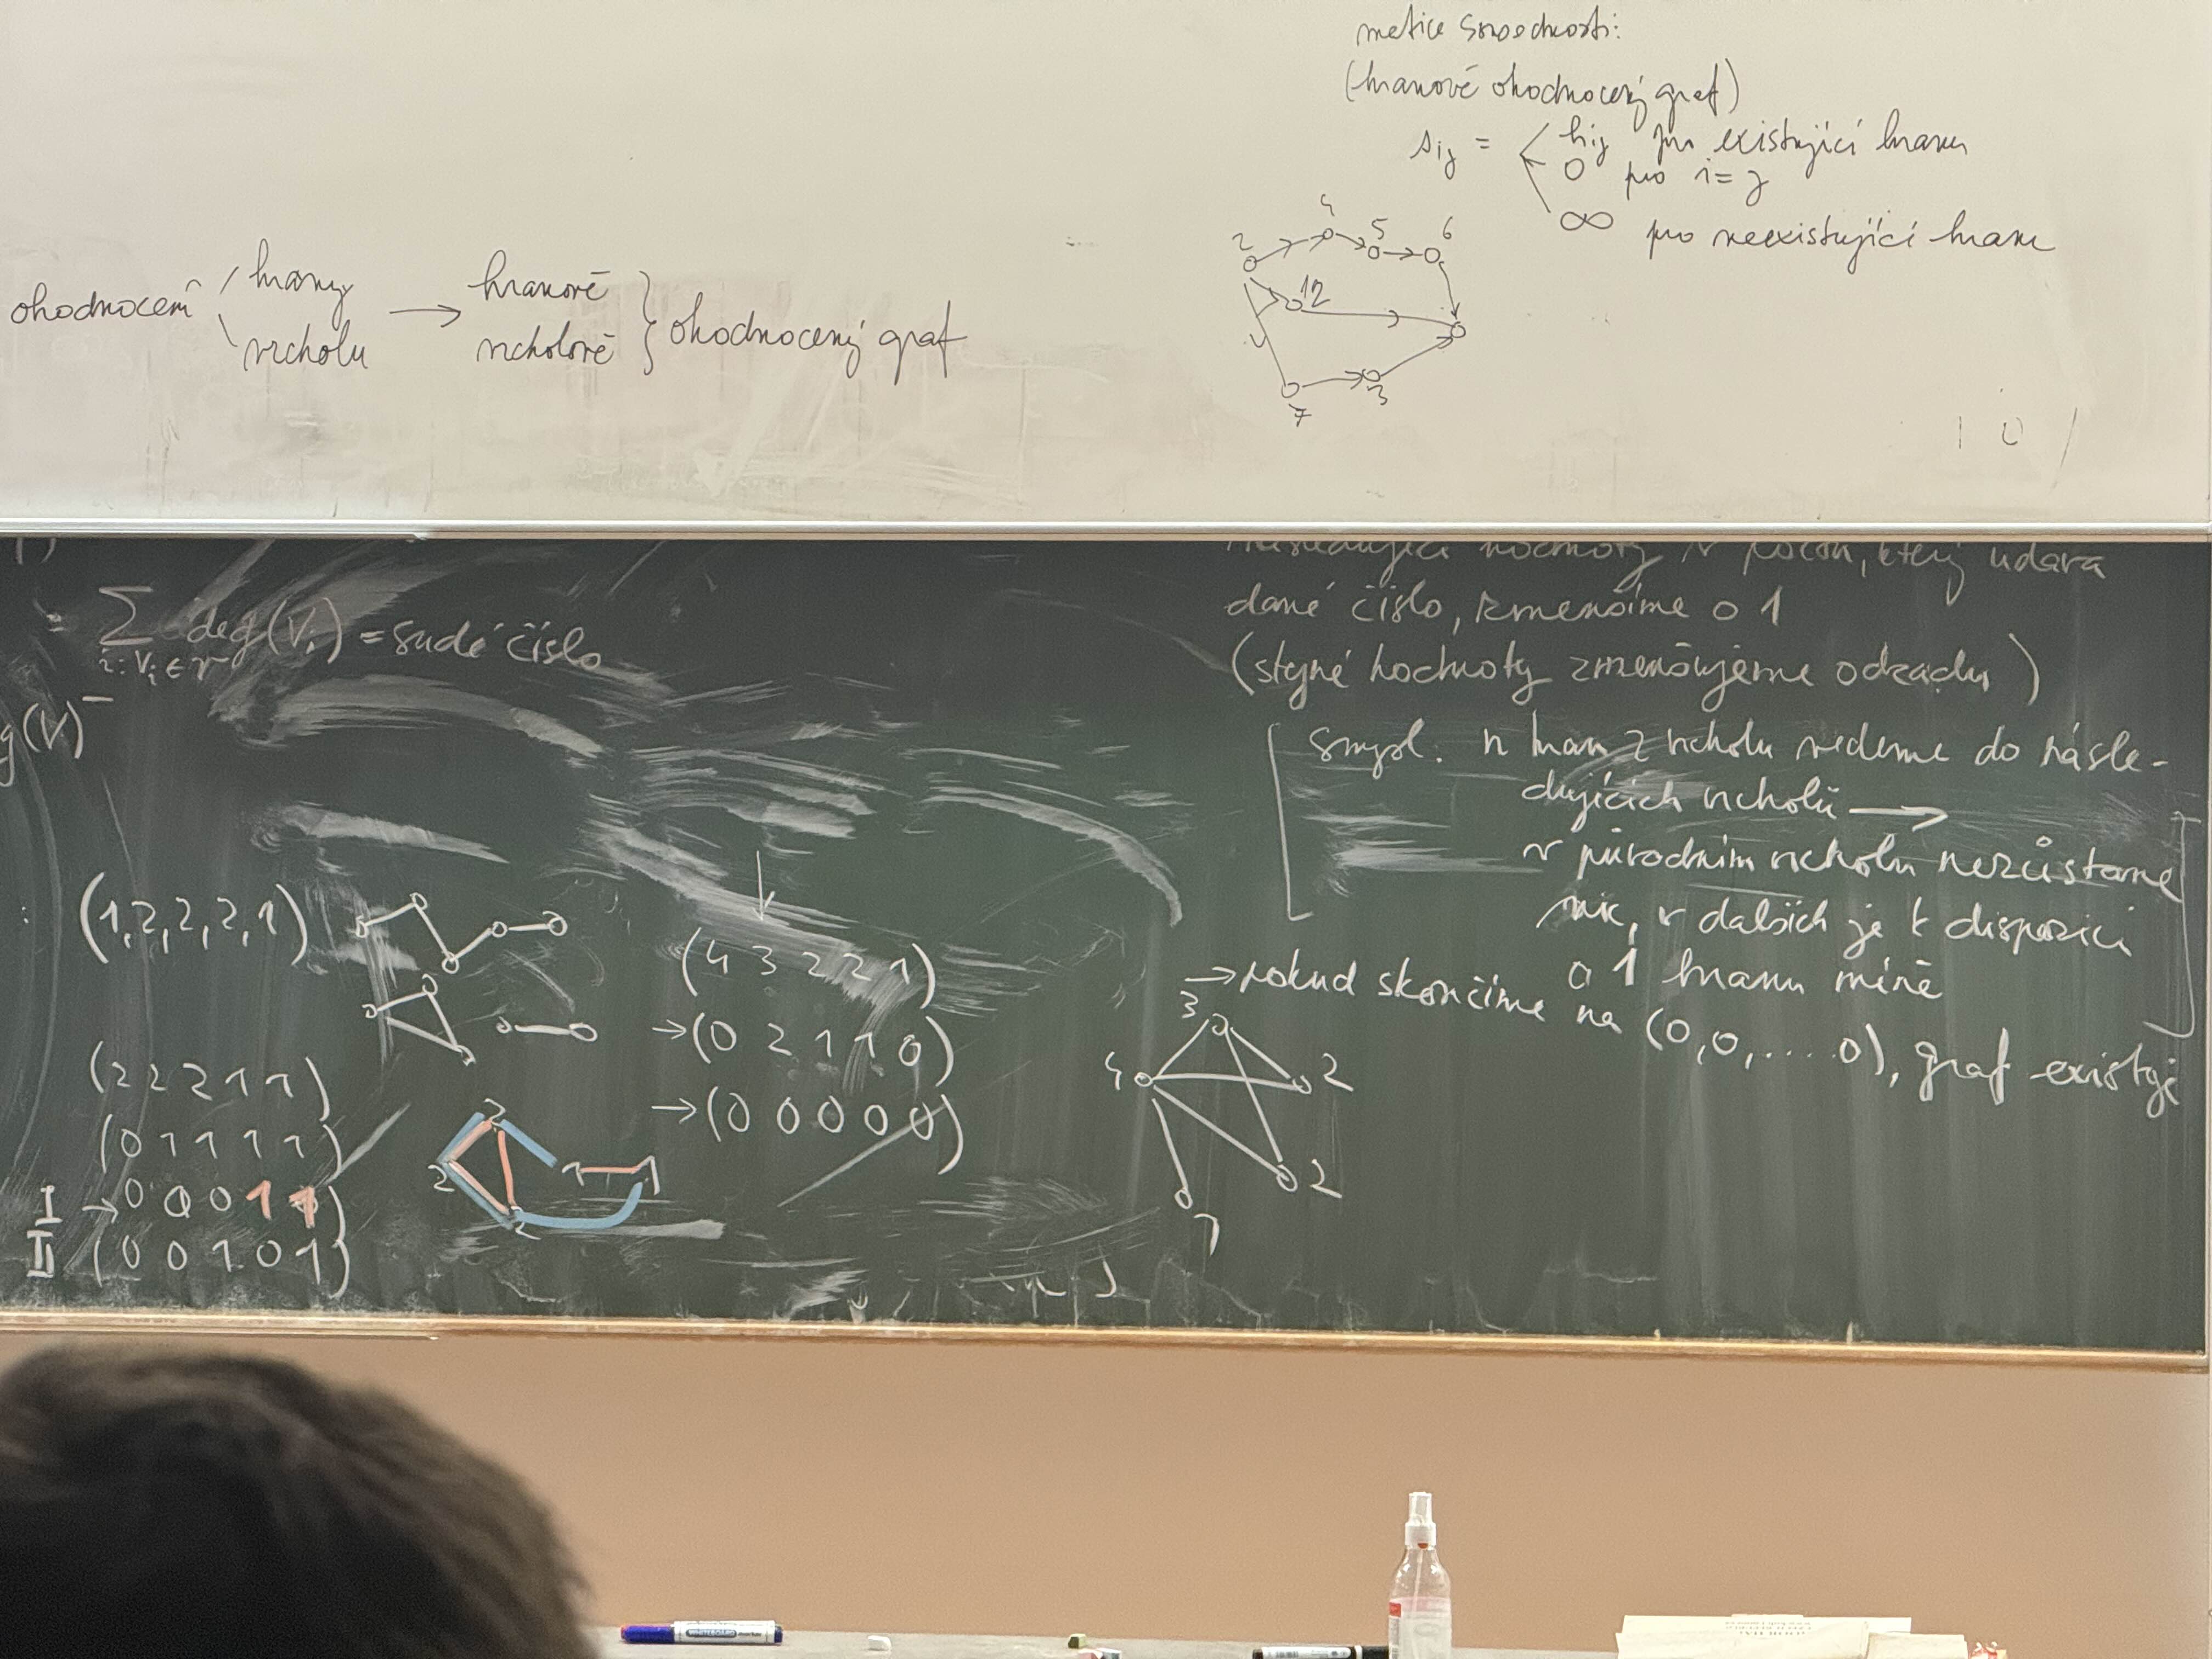 matice sousednosti:
(hranově ohodnocený graf)
s_ij = h_ij pro existující hranu
0 pro i=j
∞ pro neexistující hranu
ohodnocení hrany → hranově
vrcholu vrcholově } ohodnocený graf
4
2 5 6
12
7 3
který udává
∑ deg(Vi) = sudé číslo
i: Vi ∈ V
dané číslo, zmenšíme o 1
(stejné hodnoty zmenšujeme odzadu)
g(V)⁻
smysl. n hran z vrcholu vedeme do násle-
dujících vrcholů →
v původním vrcholu nezůstane
nic, v dalších je k dispozici
o 1 hranu méně
→ pokud skončíme na (0,0,....0), graf existuje
(1,2,2,2,1)
(2 2 2 1 1)
(0 1 1 1 1)
I → 0 0 0 1 1)
II (0 0 1 0 1)
2
2 1 1
2
(4 3 2 2 1)
→(0 2 1 1 0)
→(0 0 0 0 0)
3
4 2
2
1
WHITEBOARD marker